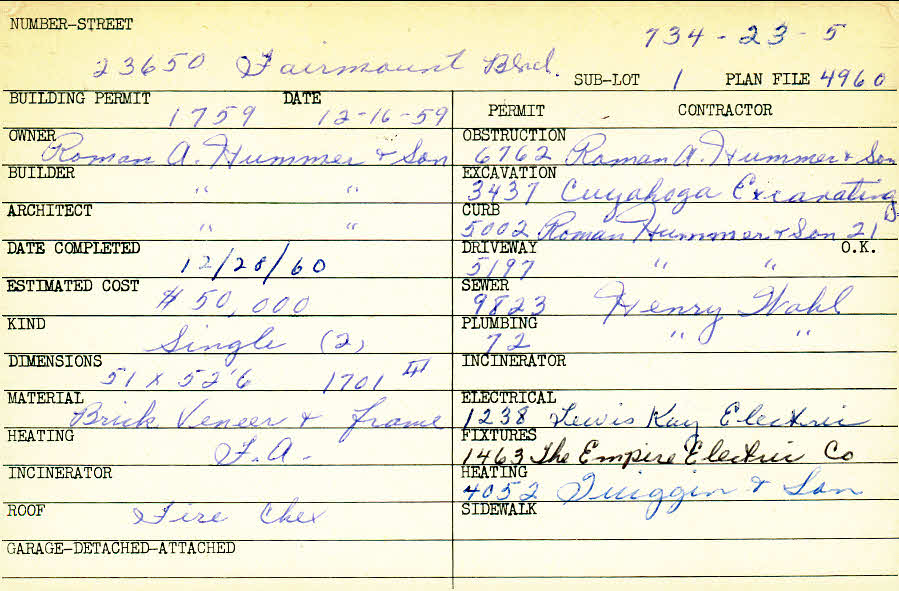 NUMBER-STREET
734-23-5
23650 Fairmount Blvd.
SUB-LOT 1 PLAN FILE 4960
BUILDING PERMIT DATE
1759 12-16-59
OWNER
Roman A. Hummer & Son
BUILDER
" "
ARCHITECT
" "
DATE COMPLETED
12/28/60
ESTIMATED COST
$50,000
KIND
Single (2)
DIMENSIONS
51 x 52'6 1701
MATERIAL
Brick Veneer & frame
HEATING
F.A.
INCINERATOR
ROOF
Fire Chex
GARAGE-DETACHED-ATTACHED
PERMIT CONTRACTOR
OBSTRUCTION
6762 Roman A. Hummer & Son
EXCAVATION
3437 Cuyahoga Excavating
CURB
5002 Roman Hummer & Son 21
DRIVEWAY O.K.
5197 " "
SEWER
9823 Henry Wahl
PLUMBING
72 " "
INCINERATOR
ELECTRICAL
1238 Lewis Kay Electric
FIXTURES
1463 The Empire Electric Co
HEATING
4052 & Son
SIDEWALK